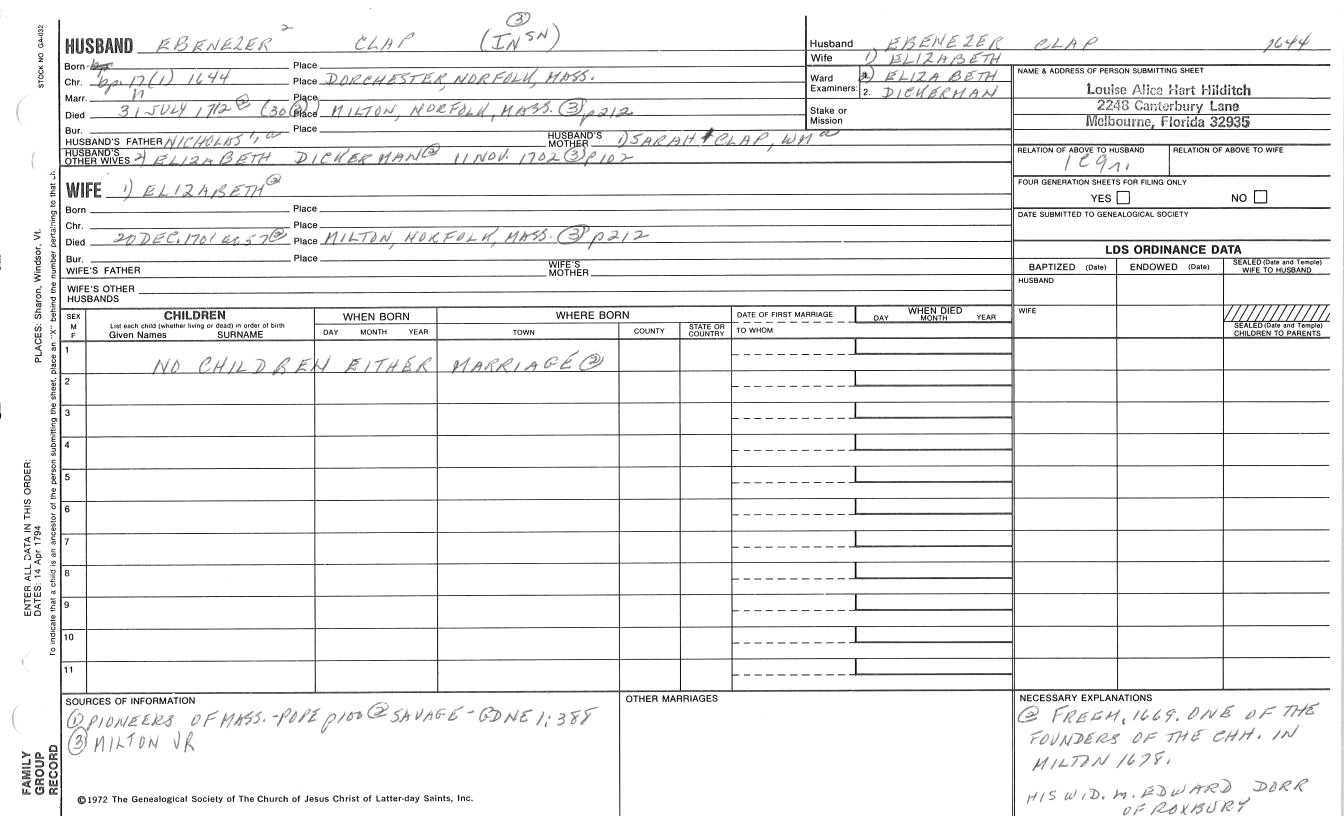 STOCK NO. GA-032
PLACES: Sharon, Windsor, Vt.
ENTER ALL DATA IN THIS ORDER:
DATES: 14 Apr 1794
To indicate that a child is an ancestor of the person submitting the sheet, place an "X" behind the number pertaining to that
FAMILY GROUP RECORD
HUSBAND EBENEZER 2 CLAP (IN SN) 3
Born Place
Chr. bp 17 (1) 1644 Place DORCHESTER, NORFOLK, MASS.
Marr. Place
Died 31 JULY 1712 ② (30 ③) Place MILTON, NORFOLK, MASS. ③ p212
Bur. Place
HUSBAND'S FATHER NICHOLAS 1, HUSBAND'S MOTHER 1) SARAH CLAP, WM
HUSBAND'S OTHER WIVES 2) ELIZABETH DICKERMAN ② 11 NOV. 1702 ③ p102
WIFE 1) ELIZABETH ②
Born Place
Chr. Place
Died 20 DEC. 1701 ae 57 ② Place MILTON, NORFOLK, MASS. ③ p212
Bur. Place
WIFE'S FATHER WIFE'S MOTHER
WIFE'S OTHER HUSBANDS
Husband EBENEZER CLAP 1644
Wife 1) ELIZABETH
Ward Examiners: 2) ELIZABETH
2. DICKERMAN
Stake or Mission
NAME & ADDRESS OF PERSON SUBMITTING SHEET
Louise Alice Hart Hilditch
2248 Canterbury Lane
Melbourne, Florida 32935
RELATION OF ABOVE TO HUSBAND RELATION OF ABOVE TO WIFE
FOUR GENERATION SHEETS FOR FILING ONLY
YES NO
DATE SUBMITTED TO GENEALOGICAL SOCIETY
LDS ORDINANCE DATA
BAPTIZED (Date) ENDOWED (Date) SEALED (Date and Temple) WIFE TO HUSBAND
HUSBAND
WIFE
SEALED (Date and Temple) CHILDREN TO PARENTS
SEX M F
CHILDREN
List each child (whether living or dead) in order of birth
Given Names SURNAME
WHEN BORN
DAY MONTH YEAR
WHERE BORN
TOWN COUNTY STATE OR COUNTRY
DATE OF FIRST MARRIAGE
TO WHOM
WHEN DIED
DAY MONTH YEAR
1
NO CHILDREN EITHER MARRIAGE ②
2
3
4
5
6
7
8
9
10
11
SOURCES OF INFORMATION
① PIONEERS OF MASS.-POPE p100 ② SAVAGE-GDNE 1:388
③ MILTON VR
©1972 The Genealogical Society of The Church of Jesus Christ of Latter-day Saints, Inc.
OTHER MARRIAGES
NECESSARY EXPLANATIONS
② FREEM. 1669. ONE OF THE
FOUNDERS OF THE CHH. IN
MILTON 1678.
HIS WID. M. EDWARD DORR
OF ROXBURY